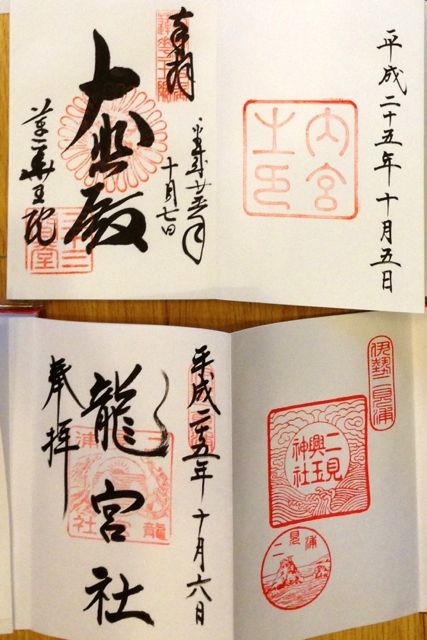 平成二十五年十月五日
内宮
之印
奉拝
平成廿五年
十月七日
大悲殿
蓮華王院
平成二十五年十月六日
龍宮社
奉拝
伊勢二見浦
二見
興玉
神社
二見浦